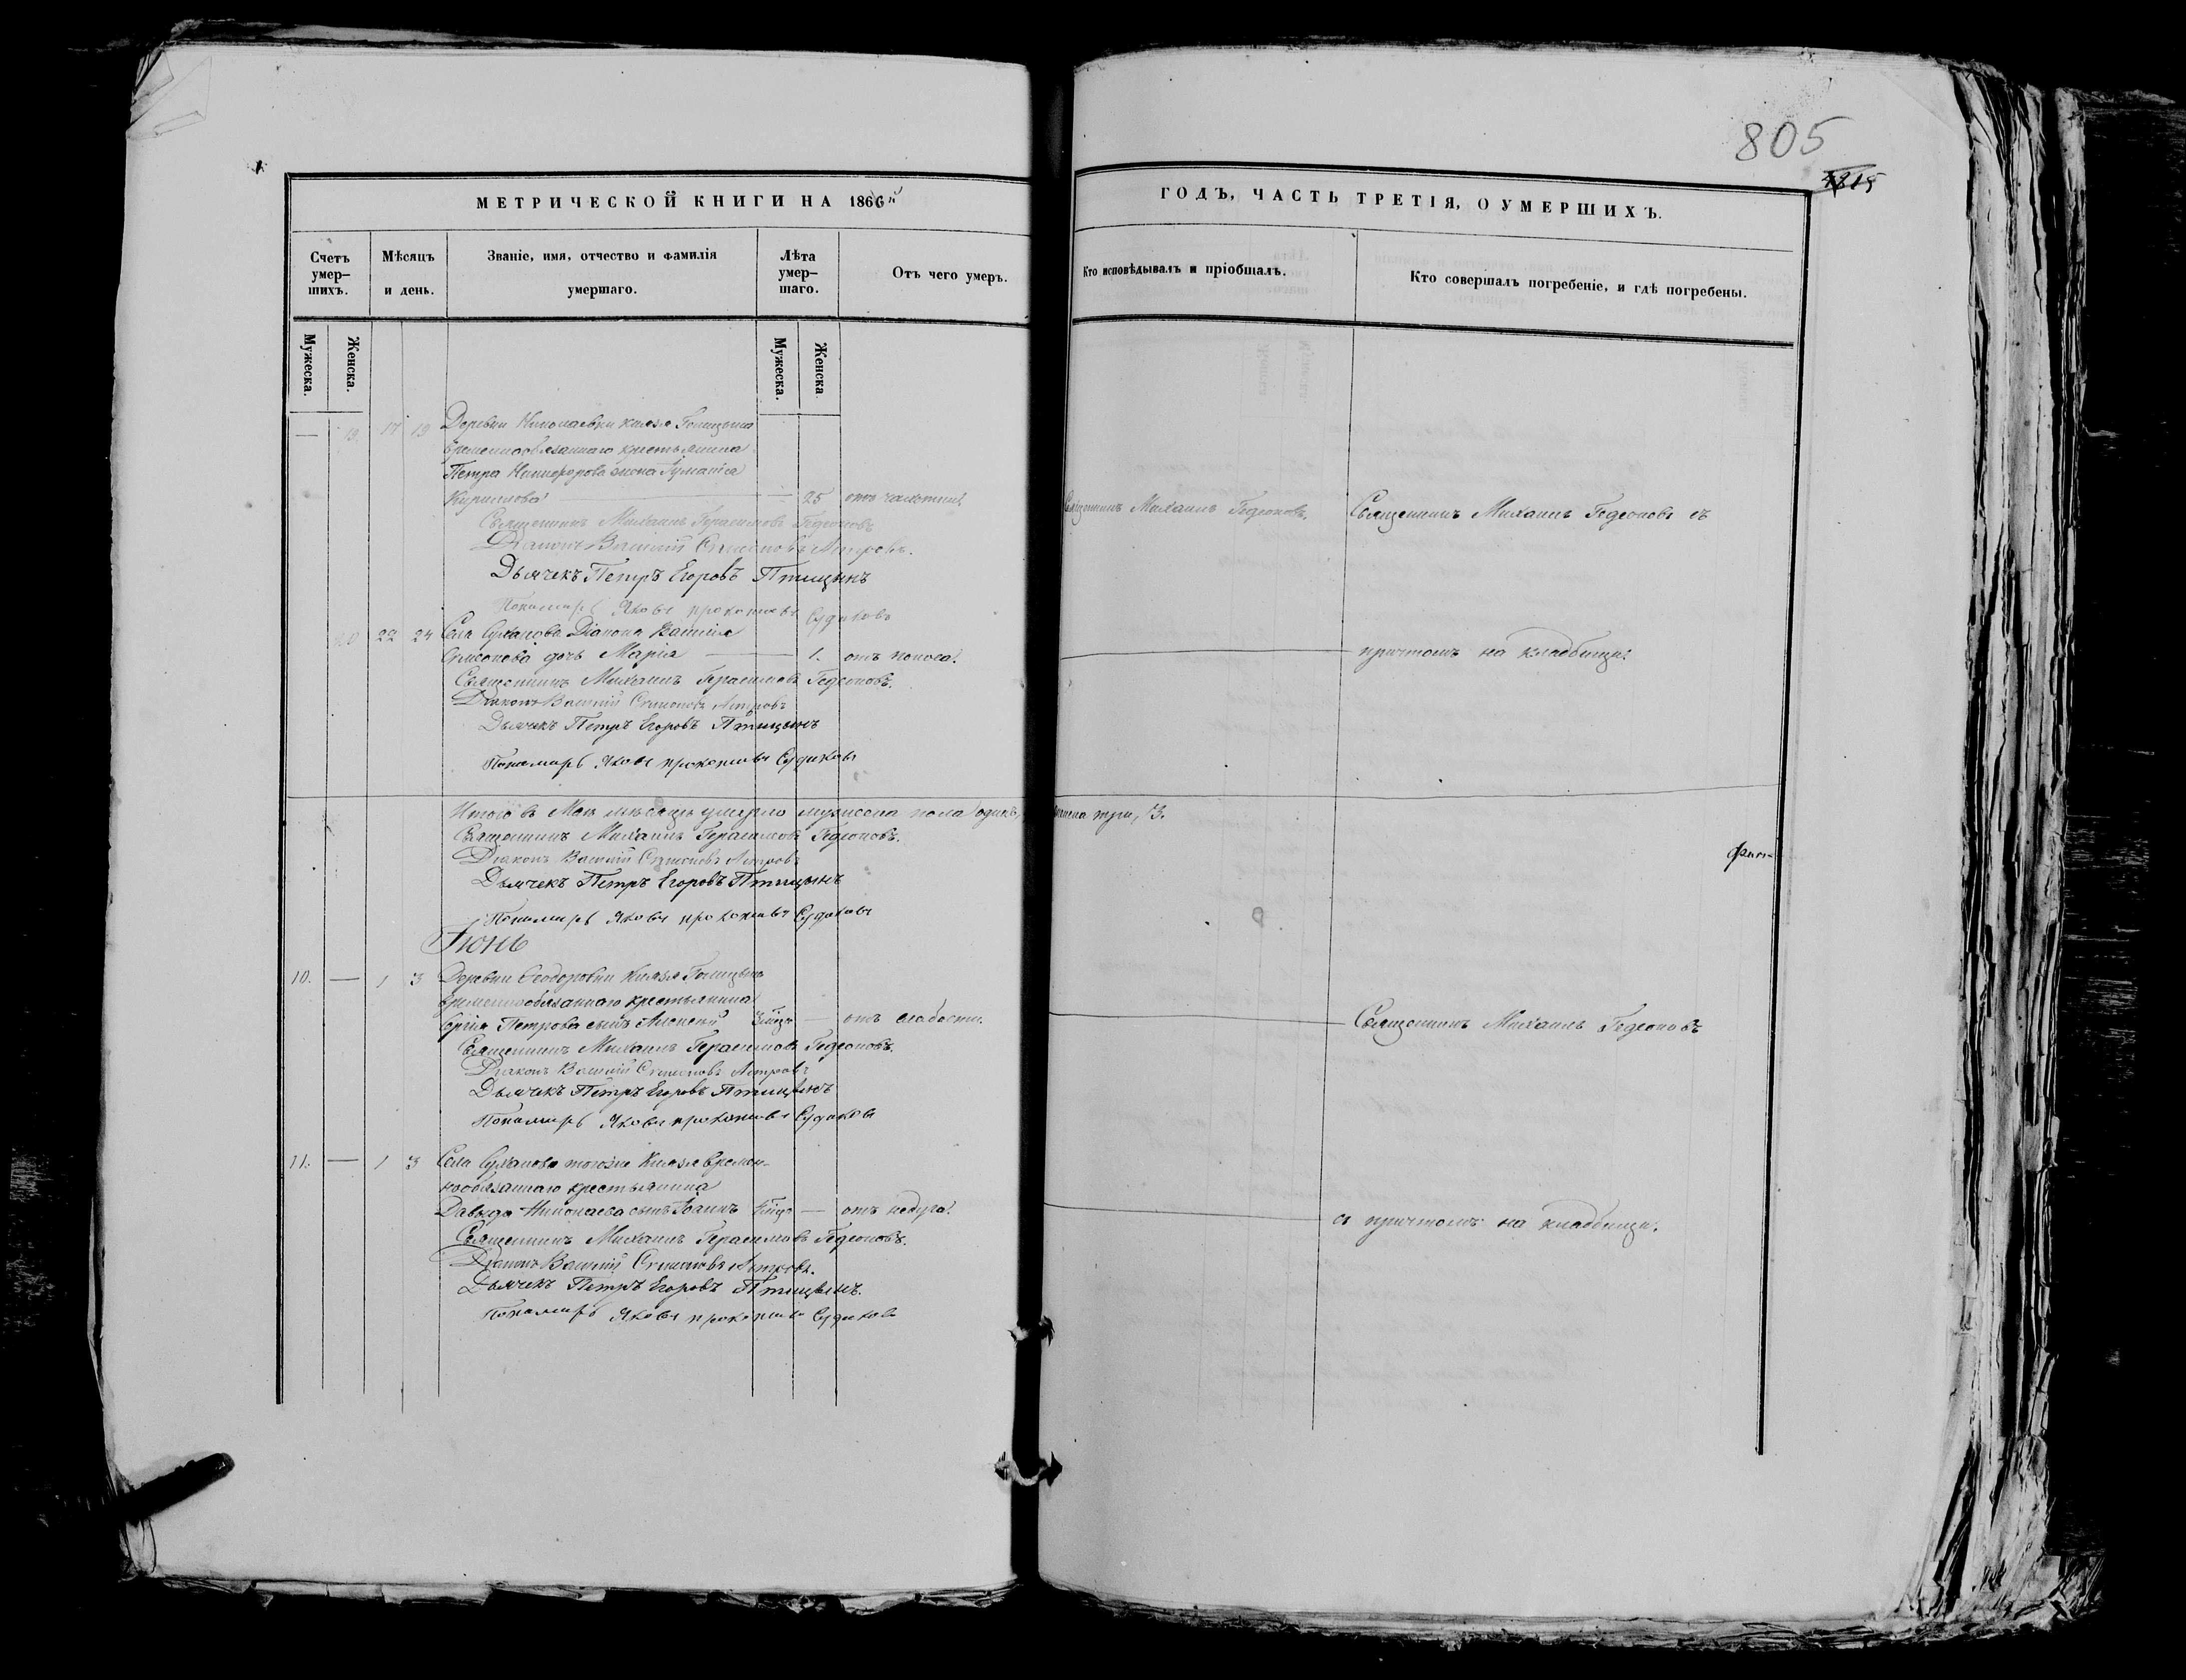 805
1815
МЕТРИЧЕСКОЙ КНИГИ НА 1866й
ГОДЪ, ЧАСТЬ ТРЕТІЯ, О УМЕРШИХЪ.
Счетъ умер-шихъ.
Мѣсяцъ и день.
Званіе, имя, отчество и фамилія умершаго.
Лѣта умер-шаго.
Отъ чего умеръ.
Кто исповѣдывалъ и пріобщалъ.
Кто совершалъ погребеніе, и гдѣ погребены.
Мужеска.
Женска.
Мужеска.
Женска
— 19. 17 19 Деревни Николаевки Князя Голицына
временнообязаннаго крестьянина
Петра Никифорова жена
Кирилова — 25 отъ чахотки. Священникъ Михаилъ Гедеоновъ. Священникъ Михаилъ Гедеоновъ съ
Священникъ Михаилъ Герасимовъ Гедеоновъ
Діаконъ Василій Симеоновъ Петровъ.
Дьячекъ Петръ Егоровъ Птицынъ
Пономарь Яковъ прокопьевъ Судаковъ
20 22 24 Села Діакона Василія
Симеонова дочь Марія — 1. отъ поноса. — причтомъ на кладбищѣ.
Священникъ Михаилъ Герасимовъ Гедеоновъ.
Діаконъ Василій Симеоновъ Петровъ
Дьячекъ Петръ Егоровъ Птицынъ
Пономарь Яковъ прокопьевъ Судаковъ
Итого въ Маѣ мѣсяцѣ умерло мужеска пола одинъ, женска три, 3.
Священникъ Михаилъ Герасимовъ Гедеоновъ.
Діаконъ Василій Симеоновъ Петровъ
Дьячекъ Петръ Егоровъ Птицынъ
Пономарь Яковъ прокопьевъ Судаковъ
Іюнь
10. — 1 3 Деревни Ѳеодоровки Князя Голицына
временнообязаннаго крестьянина
Сергія Петрова сынъ Алексѣй — отъ слабости. — Священникъ Михаилъ Гедеоновъ
Священникъ Михаилъ Герасимовъ Гедеоновъ.
Діаконъ Василій Симеоновъ Петровъ
Дьячекъ Петръ Егоровъ Птицынъ
Пономарь Яковъ прокопьевъ Судаковъ
11. — 1 3 Села тогоже Князя времен-
нообязаннаго крестьянина
Давыда Николаева сынъ Іоаннъ — отъ недуга. — съ причтомъ на кладбищѣ.
Священникъ Михаилъ Герасимовъ Гедеоновъ.
Діаконъ Василій Симеоновъ Петровъ.
Дьячекъ Петръ Егоровъ Птицынъ.
Пономарь Яковъ прокопьевъ Судаковъ